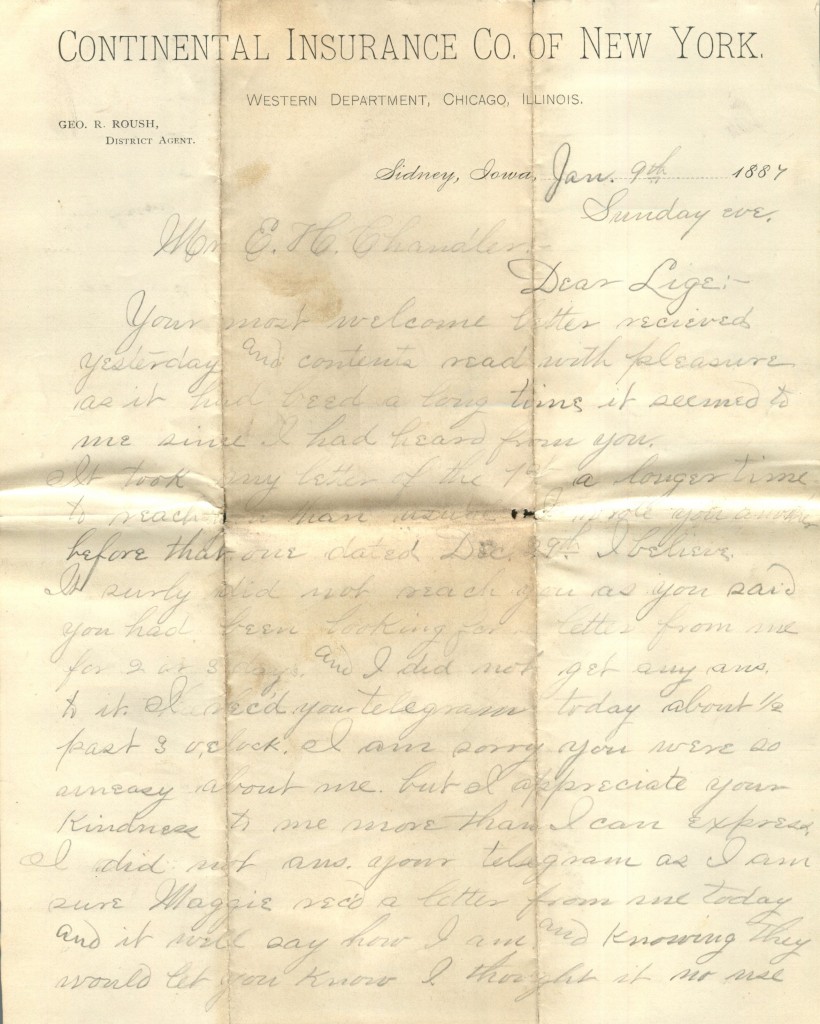 CONTINENTAL INSURANCE CO. OF NEW YORK.
WESTERN DEPARTMENT, CHICAGO, ILLINOIS.
GEO. R. ROUSH,
DISTRICT AGENT.
Sidney, Iowa, Jan. 9th 1887
Sunday eve.
Mr E. H. Chandler.-
Dear Lige:-
Your most welcome letter recieved
yesterday and contents read with pleasure
as it had beed a long time it seemed to
me since I had heard from you.
It took my letter of the 1st a longer time
to reach you than usual I wrote you another
before that one dated Dec. 29th I believe.
It surly did not reach you as you said
you had been looking for a letter from me
for 2 or 3 days. and I did not get any ans.
to it. I rec'd your telegram today about 1/2
past 3 o,clock. I am sorry you were so
uneasy about me. but I appreciate your
kindness to me more than I can express.
I did not ans. your telegram as I am
sure Maggie rec'd a letter from me today
and it will say how I am and knowing they
would let you know I thought it no use